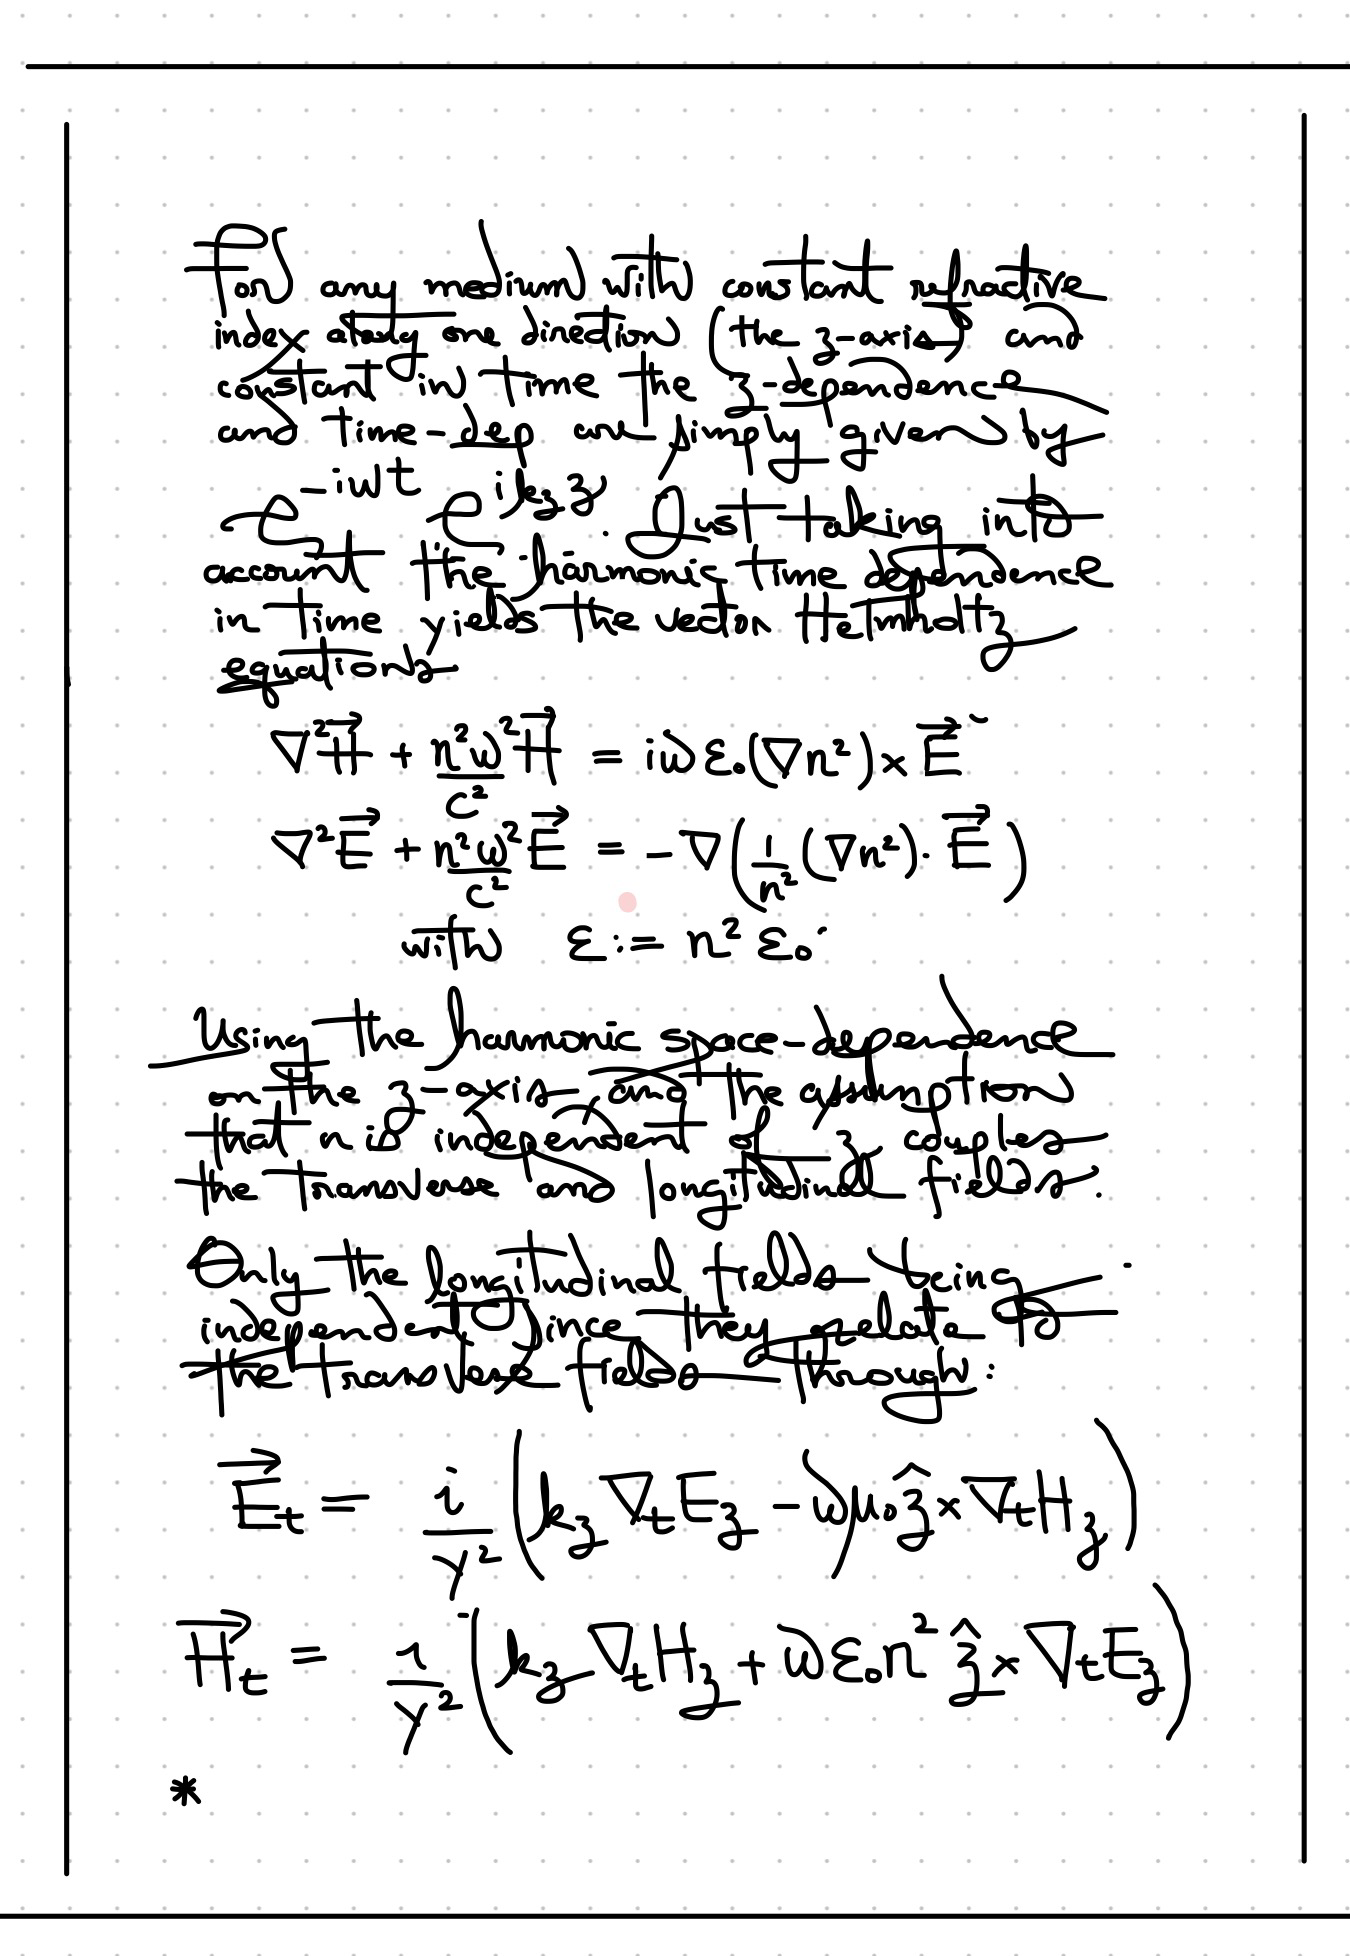 For any medium with constant refractive
index along one direction (the z-axis) and
constant in time the z-dependence
and time-dep are simply given by
e^{-iωt} e^{ik_z z}. Just taking into
account the harmonic time dependence
in time yields the vector Helmholtz
equations
∇²H⃗ + n²ω²/c² H⃗ = iωε₀(∇n²) × E⃗
∇²E⃗ + n²ω²/c² E⃗ = -∇(1/n² (∇n²)· E⃗)
with ε := n² ε₀.
Using the harmonic space-dependence
on the z-axis and the assumption
that n is independent of z couples
the transverse and longitudinal fields.
Only the longitudinal fields being
independent since they relate to
the transverse fields through:
E⃗_t = i/γ² (k_z ∇_t E_z - ωμ₀ ẑ × ∇_t H_z)
H⃗_t = i/γ² (k_z ∇_t H_z + ωε₀n² ẑ × ∇_t E_z)
*